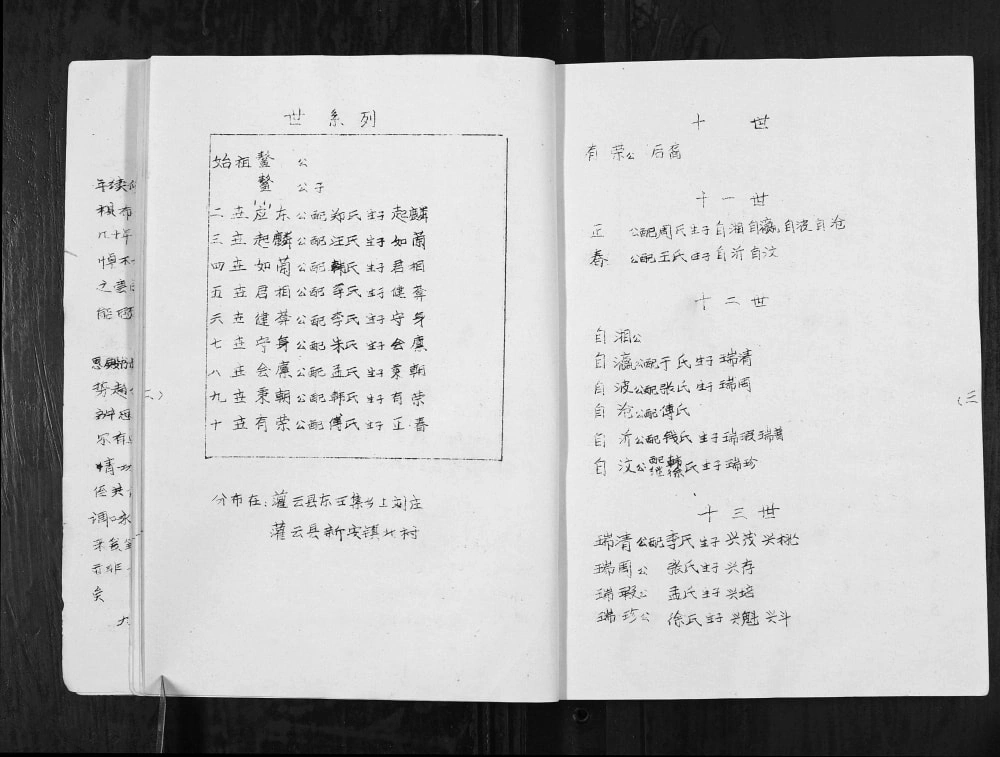 世系列
始祖鳌公
鳌公子
二世应东公配郑氏生子起麟
三世起麟公配汪氏生子如蘭
四世如蘭公配韩氏生子君相
五世君相公配 氏生子健
六世健 公配李氏生子守身
七世守身公配朱氏生子会廉
八世会廉公配孟氏生子秉朝
九世秉朝公配韩氏生子有荣
十世有荣公配傅氏生子正春
分布在：灌云县东王集乡上刘庄
灌云县新安镇北村
十世
有荣公后裔
十一世
正公配周氏生子自湘自瀛自波自沧
春公配王氏生子自沂自汶
十二世
自湘公
自瀛公配于氏生子瑞清
自波公配张氏生子瑞周
自沧公配傅氏
自沂公配钱氏生子瑞瑕瑞
自汶公配韩继徐氏生子瑞珍
十三世
瑞清公配李氏生子兴茂兴桃
瑞周公张氏生子兴存
瑞瑕公孟氏生子兴培
瑞珍公徐氏生子兴魁兴斗
(三